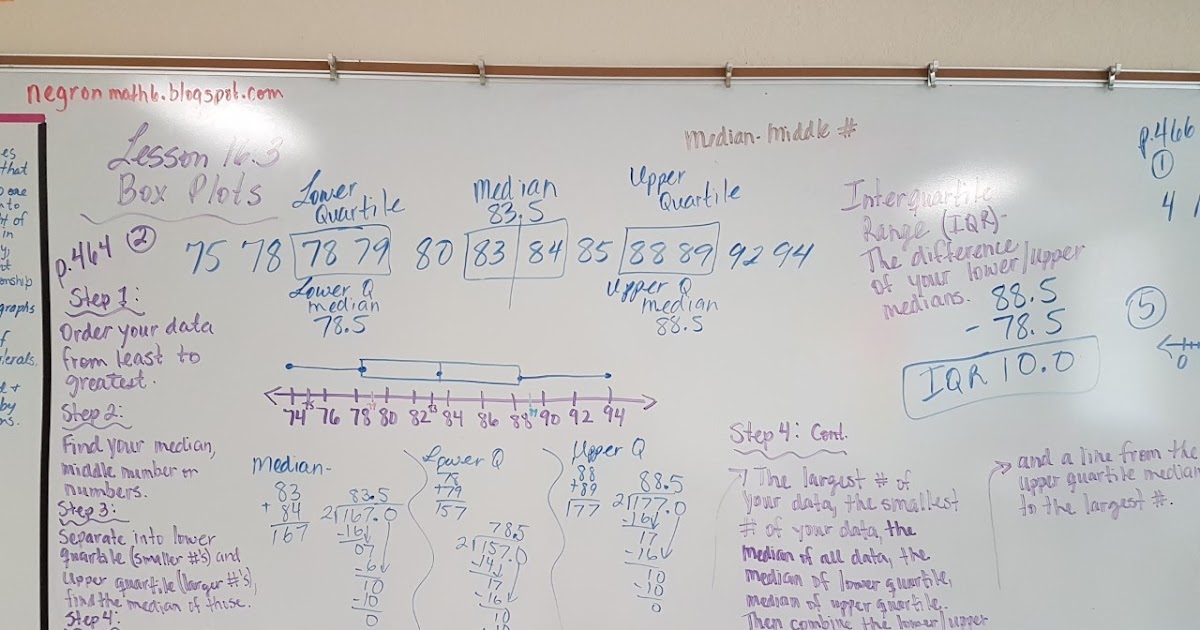 negronmath6.blogspot.com
Lesson 16.3
Box Plots
Median-Middle #
p.466
①
4
es
that
into
of
in
graphs
by
p.464 ②
Lower
Quartile
Median
83.5
Upper
Quartile
75 78 78 79 80 83 84 85 88 89 92 94
Lower Q
median
78.5
Upper Q
median
88.5
Interquartile
Range (IQR)-
The difference
of your lower/upper
medians.
88.5
- 78.5
IQR 10.0
⑤
0
Step 1:
Order your data
from least to
greatest.
Step 2:
Find your median,
middle number or
numbers.
Step 3:
Separate into lower
quartile (smaller #'s) and
upper quartile (larger #'s),
find the median of those.
Step 4:
74 75 76 78 80 82 83 84 86 88 90 92 94
Median-
83
+ 84
167
83.5
2 167.0
-16
07
-6
10
-10
0
Lower Q
78
+79
157
78.5
2 157.0
-14
17
-16
10
Upper Q
88
+89
177
88.5
2 177.0
-16
17
-16
10
-10
0
Step 4: Cont.
The largest # of
your data, the smallest
# of your data, the
median of all data, the
median of lower quartile,
median of upper quartile.
Then combine the lower/upper
and a line from the
upper quartile median
to the largest #.